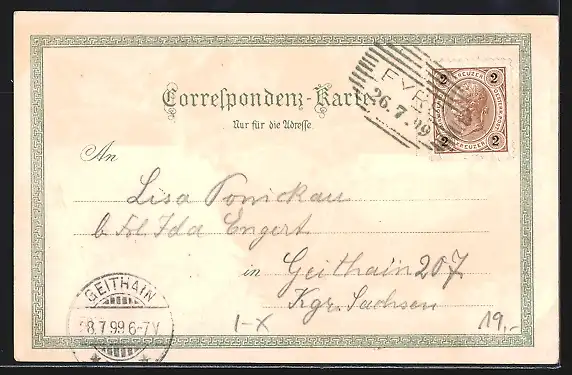 Correspondenz-Karte.
Nur für die Adresse.
2 KREUZER 2
26.7.99
2 KREUZER 2
An
Lisa Ponickau
b. Frl. Ida Engert
in Geithain 207
Kgr. Sachsen
GEITHAIN
8.7.99 6-7V
* *
I-X
19,-